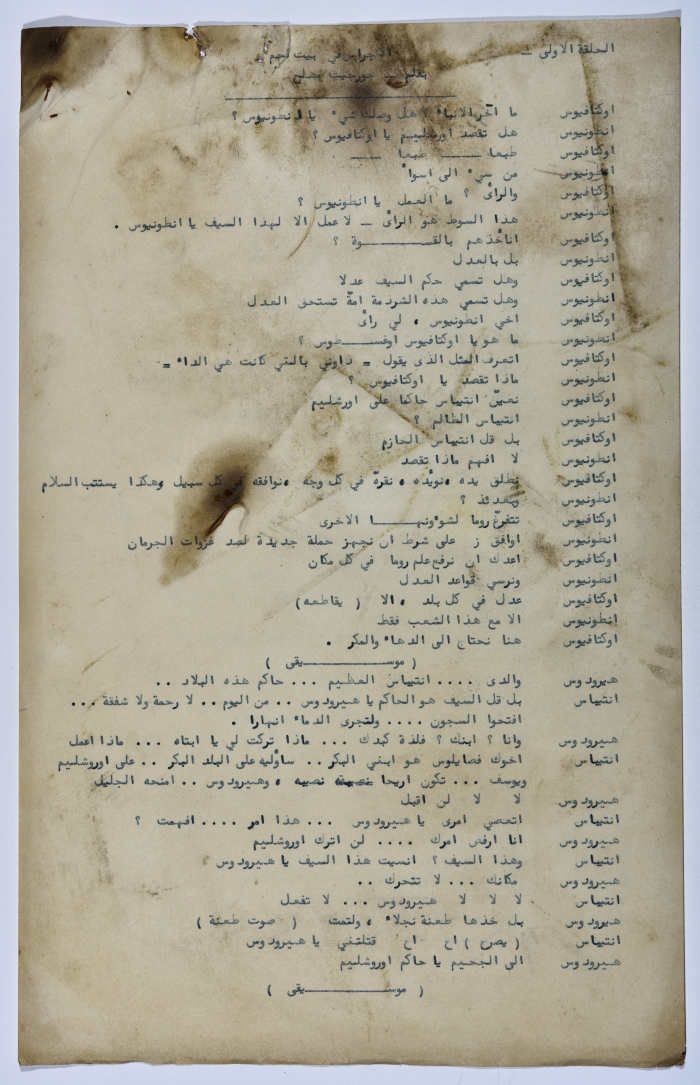 الحلقة الاولى — الاجراس في بيت لحم
بقلم — جورجيت مصلح
اوكتافيوس ما آخر الانباء ؟ هل وصلك شيء يا انطونيوس ؟
انطونيوس هل تقصد اورشليم يا اوكتافيوس ؟
اوكتافيوس طبعا ــــ طبعا ــــ
انطونيوس من سيء الى اسوأ
اوكتافيوس والرأى ؟ ما العمل يا انطونيوس ؟
انطونيوس هذا السوط هو الرأى ــ لا عمل الا لهذا السيف يا انطونيوس .
اوكتافيوس اناخذهم بالقســـــــوة ؟
انطونيوس بل بالعدل
اوكتافيوس وهل تسمي حكم السيف عدلا
انطونيوس وهل تسمي هذه الشرذمة امة تستحق العدل
اوكتافيوس اخي انطونيوس ، لي رأى
انطونيوس ما هو يا اوكتافيوس اوغســـطوس ؟
اوكتافيوس اتعرف المثل الذى يقول = داوني بالتي كانت هي الداء =
انطونيوس ماذا تقصد يا اوكتافيوس ؟
اوكتافيوس نعين انتيباس حاكما على اورشليم
انطونيوس انتيباس الظالم ؟
اوكتافيوس بل قل انتيباس الحازم
انطونيوس لا افهم ماذا تقصد
اوكتافيوس نطلق يده ، نويده ، نقره في كل وجه ، نوافقه في كل سبيل وهكذا يستتب السلام
انطونيوس وبعدئذ ؟
اوكتافيوس تتفرغ روما لشوءونهـــا الاخرى
انطونيوس اوافق ز على شرط ان نجهز حملة جديدة لصد غزوات الجرمان
اوكتافيوس اعدك ان نرفع علم روما في كل مكان
انطونيوس ونرسي قواعد العدل
اوكتافيوس عدل في كل بلد ، الا ( يقاطعه )
انطونيوس الا مع هذا الشعب فقط
اوكتافيوس هنا نحتاج الى الدهاء والمكر .
( موســـــــــيقى )
هيرودوس والدى .... انتيباس العظيم ... حاكم هذه البلاد ..
انتيباس بل قل السيف هو الحاكم يا هيرودوس .. من اليوم .. لا رحمة ولا شفقة ...
افتحوا السجون .... ولتجرى الدماء انهارا .
هيرودوس وانا ؟ ابنك ؟ فلذة كبدك ... ماذا تركت لي يا ابتاه ... ماذا اعمل
انتيباس اخوك فصايلوس هو ابني البكر .. ساوليه على البلد البكر .. على اوروشليم
ويوسف ... تكون اريحا نصيبه ، وهيرودوس .. امنحه الجليل
هيرودوس لا لا لن اقبل
انتيباس اتعصي امرى يا هيرودوس ... هذا امر .... افهمت ؟
هيرودوس انا ارفض امرك .... لن اترك اوروشليم
انتيباس وهذا السيف ؟ انسيت هذا السيف يا هيرودوس ؟
هيرودوس مكانك ... لا تتحرك ..
انتيباس لا لا لا هيرودوس ... لا تفعل
هيرودوس بل خذها طعنة نجلاء ، ولتمت ( صوت طعنة )
انتيباس ( يصرخ ) اخ اخ قتلتني يا هيرودوس
هيرودوس الى الجحيم يا حاكم اوروشليم
( موســـــــــيقى )